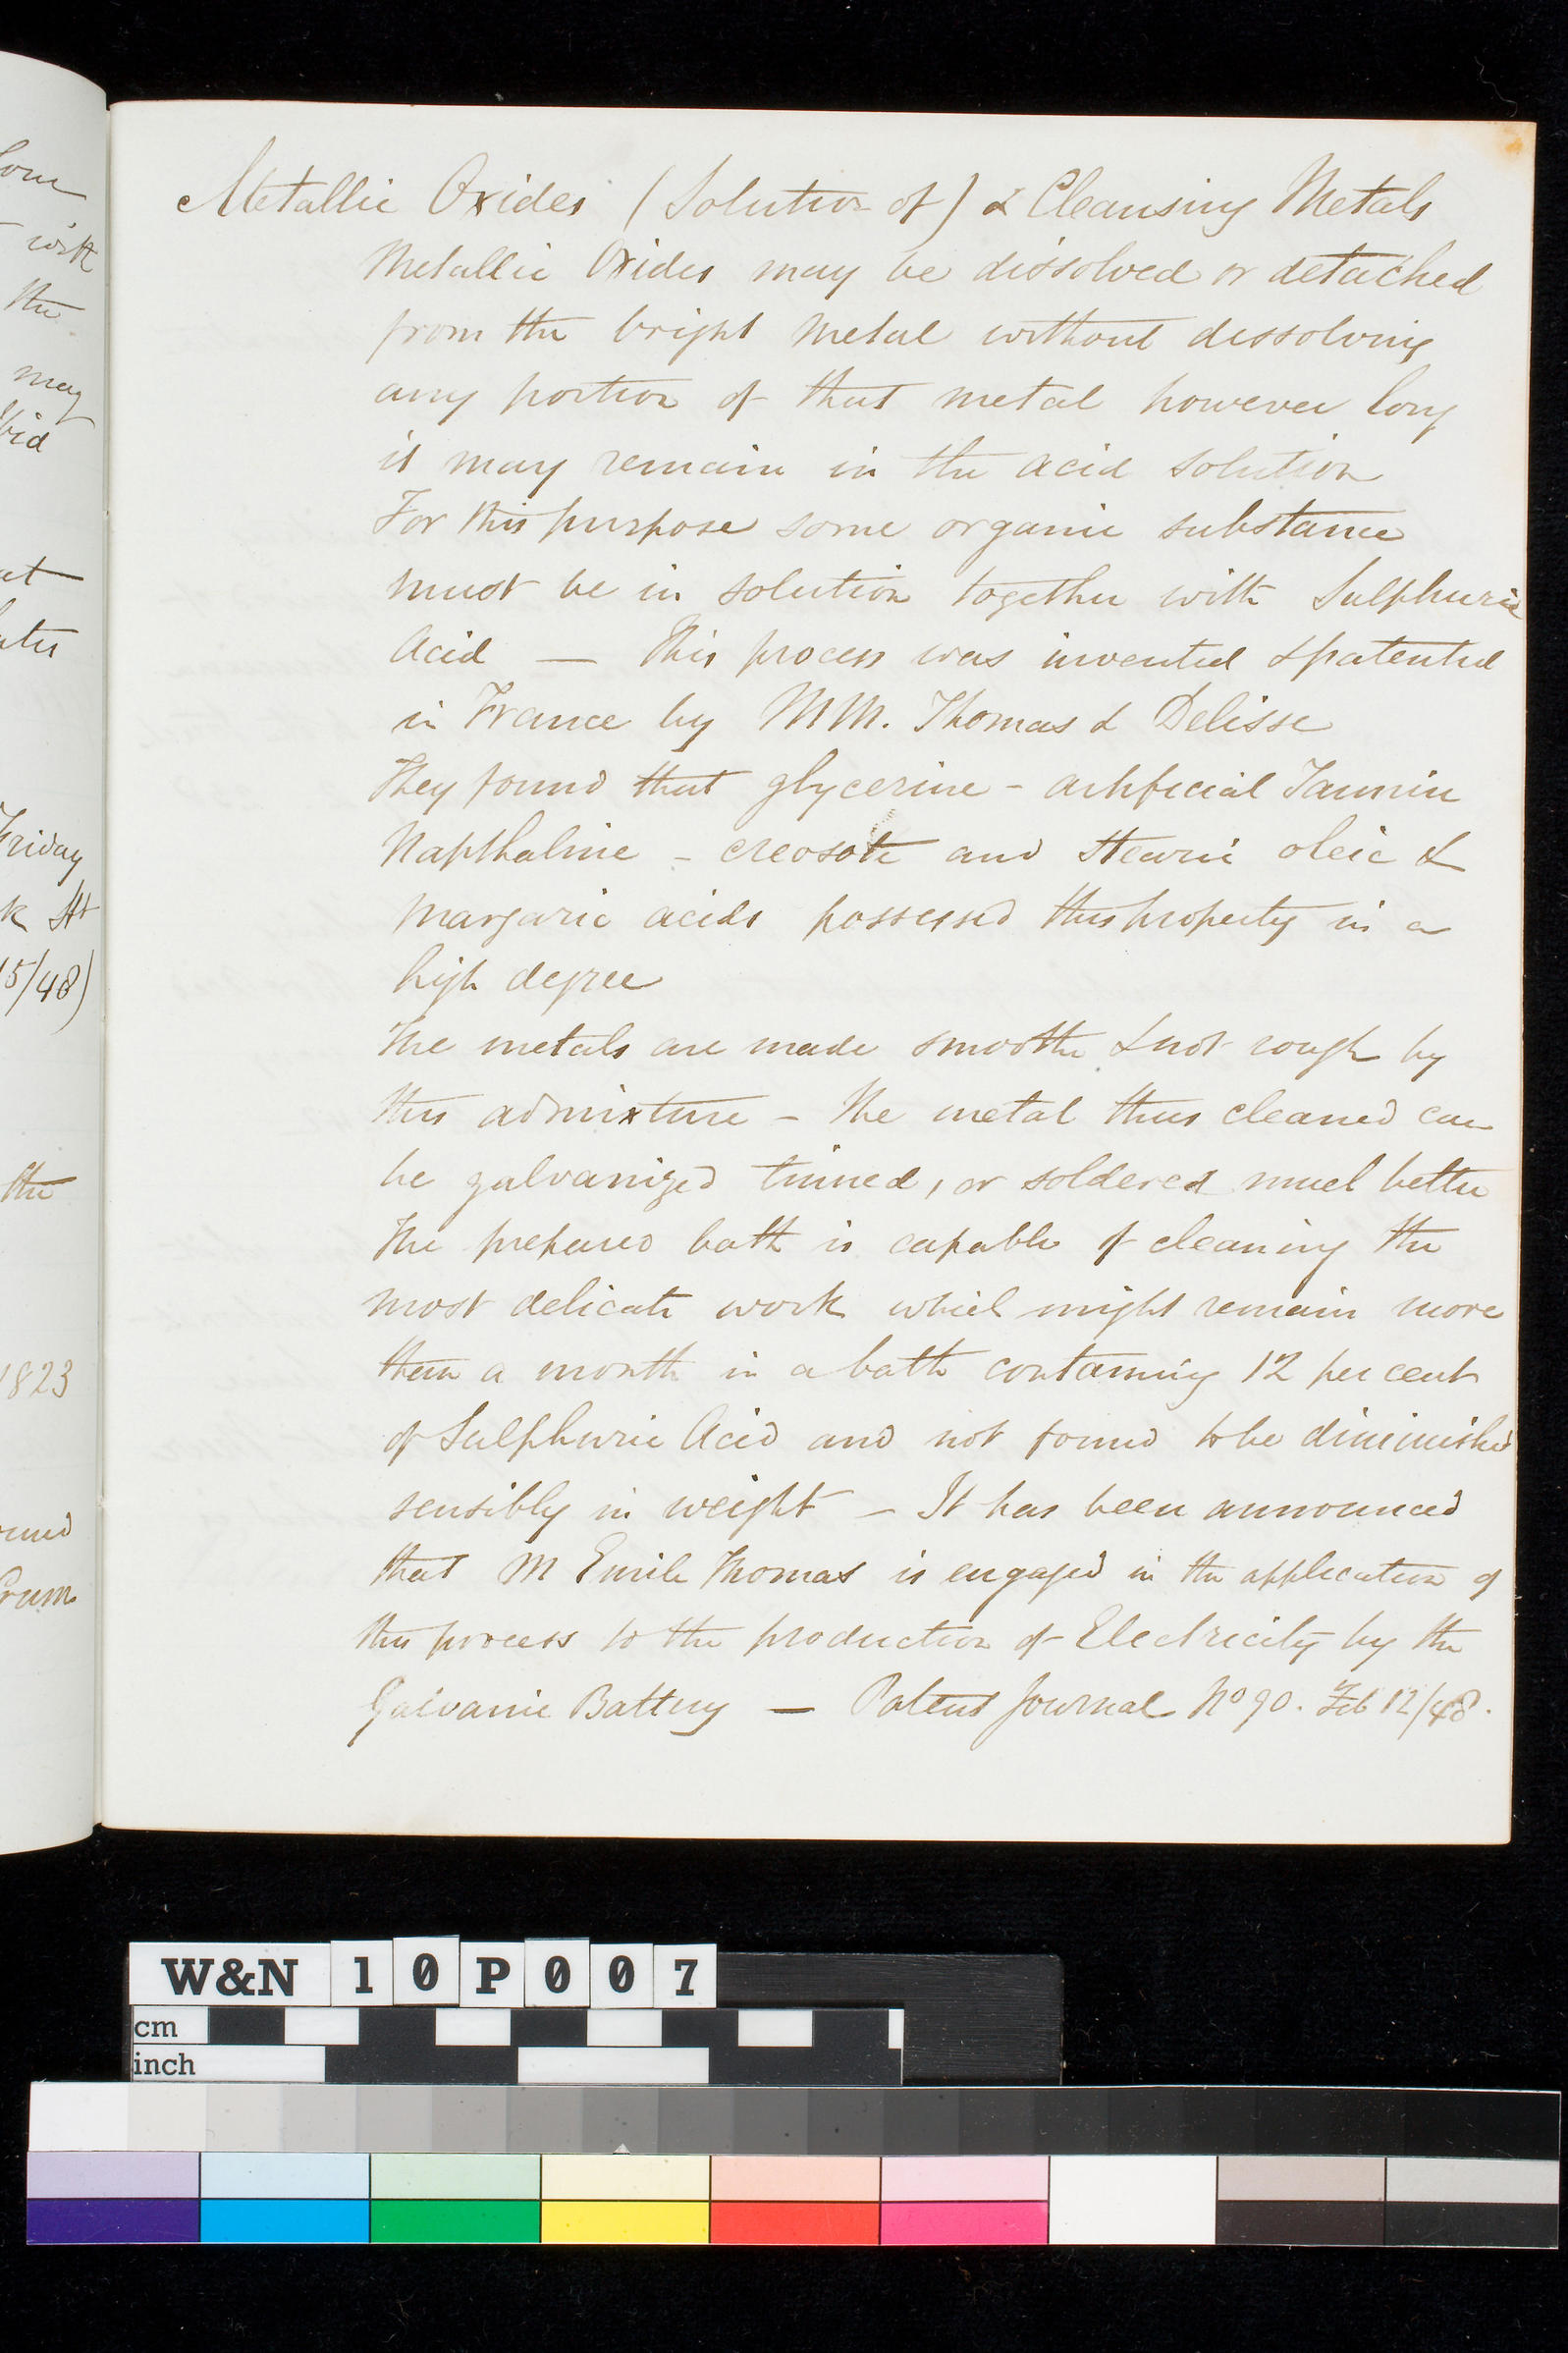 Metallic Oxides (Solution of) & Cleansing Metals
Metallic Oxides may be dissolved or detached
from the bright Metal without dissolving
any portion of that metal however long
it may remain in the acid solution
For this purpose some organic substance
must be in solution together with Sulphuric
Acid — This process was invented & patented
in France by M M. Thomas & Delisse
They found that glycerine - artificial Tannin
Napthaline - creosote and stearic oleic &
Margaric acids possessed this property in a
high degree
The metals are made smooth & not rough by
this admixture - The metal thus cleaned can
be galvanized tinned, or soldered much better
The prepared bath is capable of cleaning the
most delicate work which might remain more
than a month in a bath containing 12 per cent
of Sulphuric Acid and not found to be diminished
sensibly in weight - It has been announced
that M Emile Thomas is engaged in the application of
this process to the production of Electricity by the
Galvanic Battery — Patent Journal No 90. Feb 12/48.
with
the
may
Friday
k St
15/48)
the
1823
W&N 10P007
cm
inch